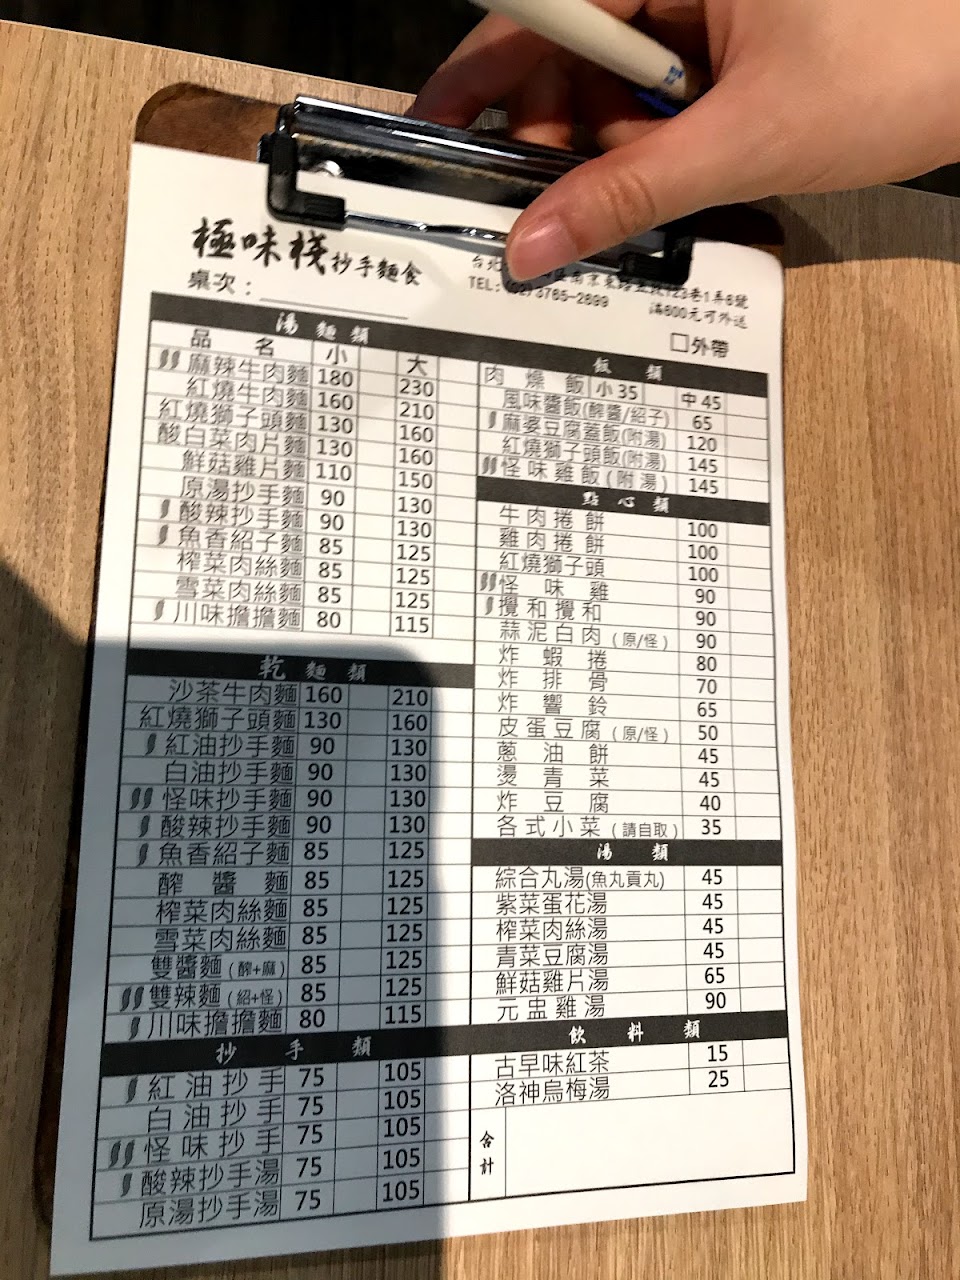 極味棧抄手麵食
台北 區南京東路五段123巷1弄6號
TEL:(02)3765-2699
滿600元可外送
桌次:
□外帶
湯麵類
品名 小 大
麻辣牛肉麵 180 230
紅燒牛肉麵 160 210
紅燒獅子頭麵 130 160
酸白菜肉片麵 130 160
鮮菇雞片麵 110 150
原湯抄手麵 90 130
酸辣抄手麵 90 130
魚香紹子麵 85 125
榨菜肉絲麵 85 125
雪菜肉絲麵 85 125
川味擔擔麵 80 115
乾麵類
沙茶牛肉麵 160 210
紅燒獅子頭麵 130 160
紅油抄手麵 90 130
白油抄手麵 90 130
怪味抄手麵 90 130
酸辣抄手麵 90 130
魚香紹子麵 85 125
醡醬麵 85 125
榨菜肉絲麵 85 125
雪菜肉絲麵 85 125
雙醬麵(醡+麻) 85 125
雙辣麵(紹+怪) 85 125
川味擔擔麵 80 115
抄手類
紅油抄手 75 105
白油抄手 75 105
怪味抄手 75 105
酸辣抄手湯 75 105
原湯抄手湯 75 105
飯類
肉燥飯 小35 中45
風味醬飯(醡醬/紹子) 65
麻婆豆腐蓋飯(附湯) 120
紅燒獅子頭飯(附湯) 145
怪味雞飯(附湯) 145
點心類
牛肉捲餅 100
雞肉捲餅 100
紅燒獅子頭 100
怪味雞 90
攪和攪和 90
蒜泥白肉(原/怪) 90
炸蝦捲 80
炸排骨 70
炸響鈴 65
皮蛋豆腐(原/怪) 50
蔥油餅 45
燙青菜 45
炸豆腐 40
各式小菜(請自取) 35
湯類
綜合丸湯(魚丸貢丸) 45
紫菜蛋花湯 45
榨菜肉絲湯 45
青菜豆腐湯 45
鮮菇雞片湯 65
元盅雞湯 90
飲料類
古早味紅茶 15
洛神烏梅湯 25
合計